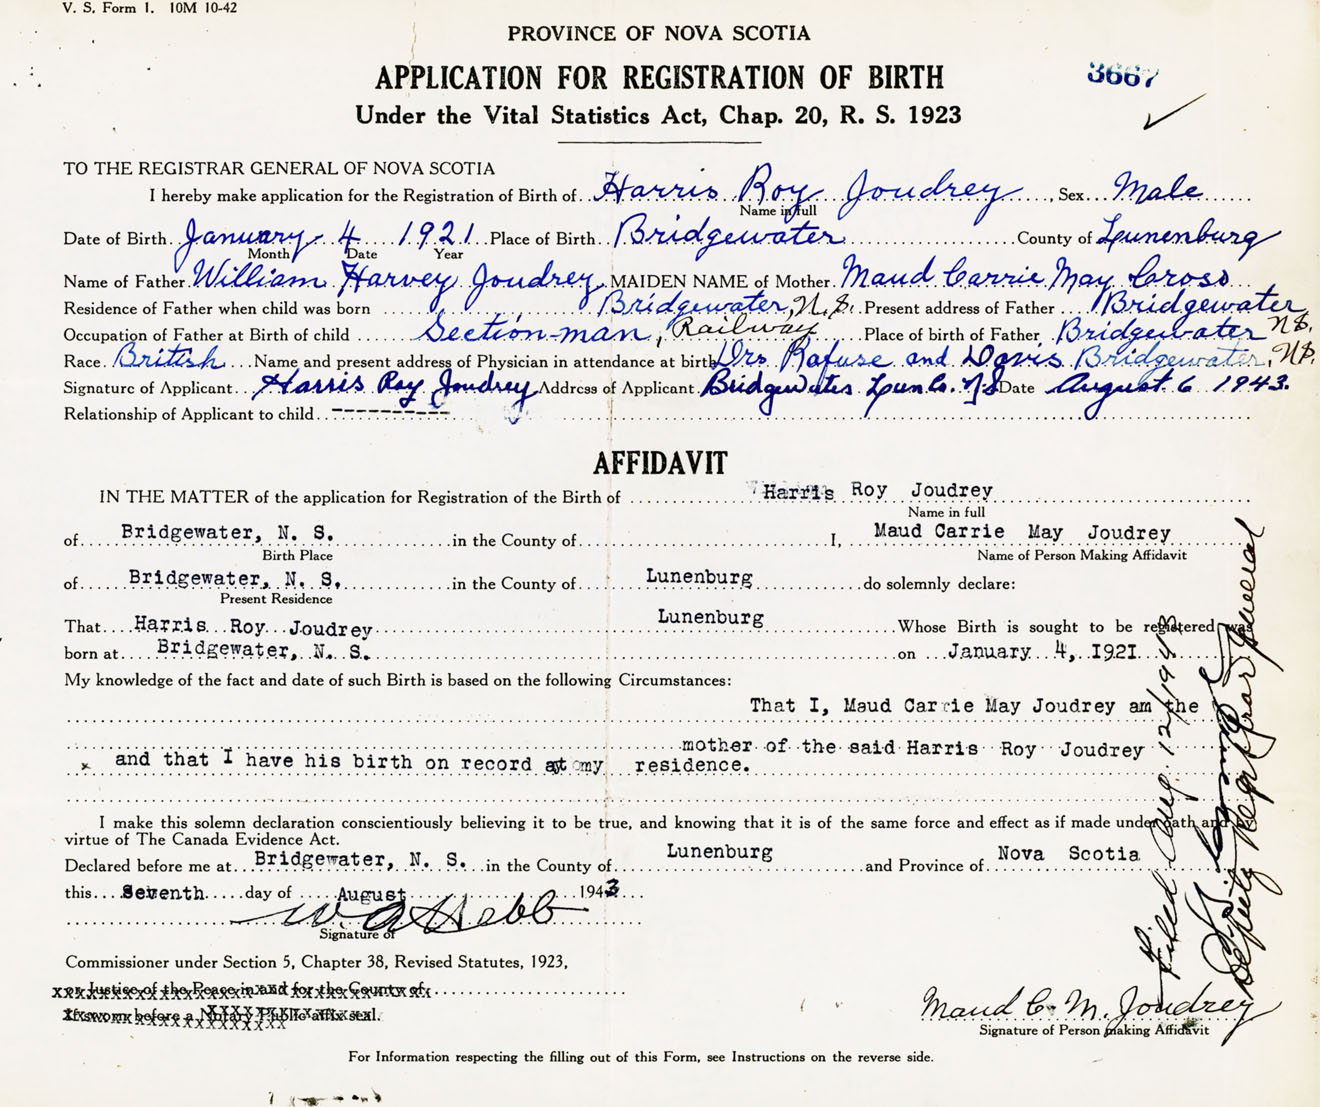 V. S. Form 1. 10M 10-42
PROVINCE OF NOVA SCOTIA
APPLICATION FOR REGISTRATION OF BIRTH
3667
Under the Vital Statistics Act, Chap. 20, R. S. 1923
TO THE REGISTRAR GENERAL OF NOVA SCOTIA
I hereby make application for the Registration of Birth of Harris Roy Joudrey, Sex Male
Name in full
Date of Birth January 4 1921 Place of Birth Bridgewater County of Lunenburg
Month Date Year
Name of Father William Harvey Joudrey, MAIDEN NAME of Mother Maud Carrie May Cross
Residence of Father when child was born Bridgewater, N.S. Present address of Father Bridgewater N.S.
Occupation of Father at Birth of child Section-man, Railway Place of birth of Father Bridgewater N.S.
Race British Name and present address of Physician in attendance at birth Drs Rafuse and Davis Bridgewater, N.S.
Signature of Applicant Harris Roy Joudrey Address of Applicant Bridgewater Lun Co. N.S Date August 6 1943.
Relationship of Applicant to child ----------
AFFIDAVIT
IN THE MATTER of the application for Registration of the Birth of Harris Roy Joudrey
Name in full
of Bridgewater, N. S. in the County of I, Maud Carrie May Joudrey
Birth Place Name of Person Making Affidavit
of Bridgewater, N. S. in the County of Lunenburg do solemnly declare:
Present Residence
That Harris Roy Joudrey Lunenburg Whose Birth is sought to be registered was
born at Bridgewater, N. S. on January 4, 1921
My knowledge of the fact and date of such Birth is based on the following Circumstances:
That I, Maud Carrie May Joudrey am the
mother of the said Harris Roy Joudrey
and that I have his birth on record at my residence.
I make this solemn declaration conscientiously believing it to be true, and knowing that it is of the same force and effect as if made under oath and by
virtue of The Canada Evidence Act.
Declared before me at Bridgewater, N. S. in the County of Lunenburg and Province of Nova Scotia
this Seventh day of August 1943
W. A. Hebb
Signature of
Commissioner under Section 5, Chapter 38, Revised Statutes, 1923,
or Justice of the Peace in and for the County of
If sworn before a Notary Public affix seal.
Maud C. M. Joudrey
Signature of Person making Affidavit
For Information respecting the filling out of this Form, see Instructions on the reverse side.
Filed Aug. 12/1943
Deputy Registrar General